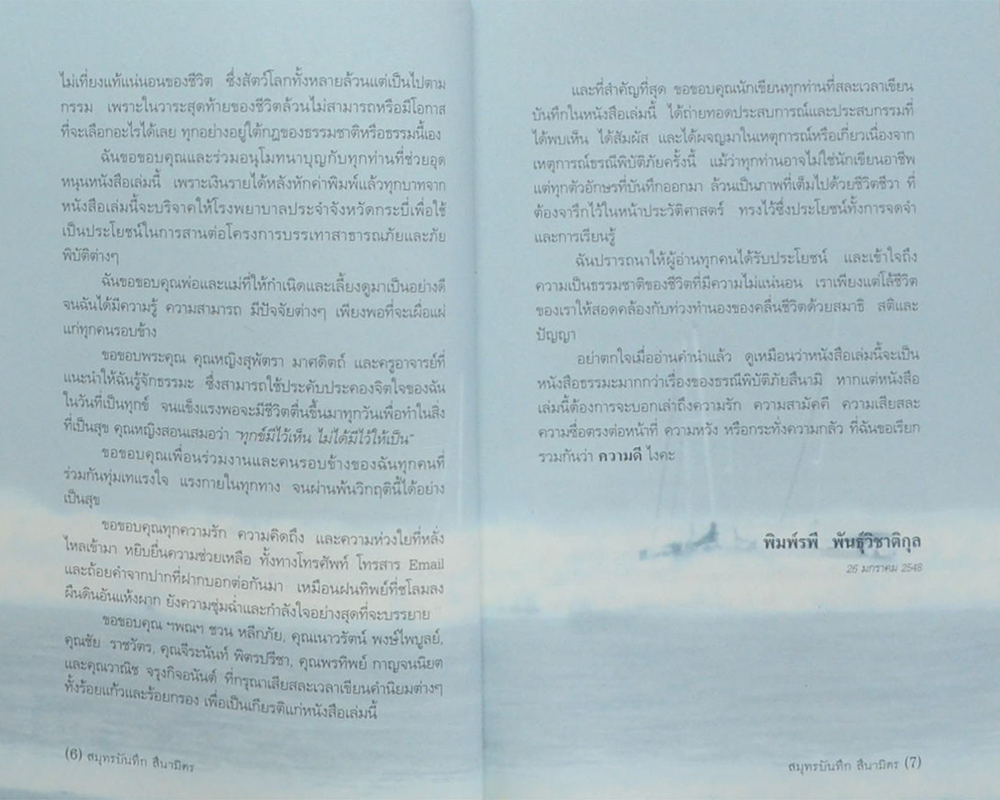 ไม่เที่ยงแท้แน่นอนของชีวิต ซึ่งสัตว์โลกทั้งหลายล้วนแต่เป็นไปตาม
กรรม เพราะในวาระสุดท้ายของชีวิตล้วนไม่สามารถหรือมีโอกาส
ที่จะเลือกอะไรได้เลย ทุกอย่างอยู่ใต้กฎของธรรมชาติหรือธรรมนี้เอง
ฉันขอขอบคุณและร่วมอนุโมทนาบุญกับทุกท่านที่ช่วยอุด
หนุนหนังสือเล่มนี้ เพราะเงินรายได้หลังหักค่าพิมพ์แล้วทุกบาทจาก
หนังสือเล่มนี้จะบริจาคให้โรงพยาบาลประจำจังหวัดกระบี่เพื่อใช้
เป็นประโยชน์ในการสานต่อโครงการบรรเทาสาธารณภัยและภัย
พิบัติต่างๆ
ฉันขอขอบคุณพ่อและแม่ที่ให้กำเนิดและเลี้ยงดูมาเป็นอย่างดี
จนฉันได้มีความรู้ ความสามารถ มีปัจจัยต่างๆ เพียงพอที่จะเผื่อแผ่
แก่ทุกคนรอบข้าง
ขอขอบพระคุณ คุณหญิงสุพัตรา มาศดิตถ์ และครูอาจารย์ที่
แนะนำให้ฉันรู้จักธรรมะ ซึ่งสามารถใช้ประคับประคองจิตใจของฉัน
ในวันที่เป็นทุกข์ จนแข็งแรงพอจะมีชีวิตตื่นขึ้นมาทุกวันเพื่อทำในสิ่ง
ที่เป็นสุข คุณหญิงสอนเสมอว่า "ทุกข์มีไว้เห็น ไม่ได้มีไว้ให้เป็น"
ขอขอบคุณเพื่อนร่วมงานและคนรอบข้างของฉันทุกคนที่
ร่วมกันทุ่มเทแรงใจ แรงกายในทุกทาง จนผ่านพ้นวิกฤตินี้ได้อย่าง
เป็นสุข
ขอขอบคุณทุกความรัก ความคิดถึง และความห่วงใยที่หลั่ง
ไหลเข้ามา หยิบยื่นความช่วยเหลือ ทั้งทางโทรศัพท์ โทรสาร Email
และถ้อยคำจากปากที่ฝากบอกต่อกันมา เหมือนฝนทิพย์ที่ชโลมลง
ผืนดินอันแห้งผาก ยังความชุ่มฉ่ำและกำลังใจอย่างสุดที่จะบรรยาย
ขอขอบคุณ ฯพณฯ ชวน หลีกภัย, คุณเนาวรัตน์ พงษ์ไพบูลย์,
คุณชัย ราชวัตร, คุณจีระนันท์ พิตรปรีชา, คุณพรทิพย์ กาญจนนิยต
และคุณวาณิช จรุงกิจอนันต์ ที่กรุณาเสียสละเวลาเขียนคำนิยมต่างๆ
ทั้งร้อยแก้วและร้อยกรอง เพื่อเป็นเกียรติแก่หนังสือเล่มนี้
(6) สมุทรบันทึก สึนามิตร
และที่สำคัญที่สุด ขอขอบคุณนักเขียนทุกท่านที่สละเวลาเขียน
บันทึกในหนังสือเล่มนี้ ได้ถ่ายทอดประสบการณ์และประสบกรรมที่
ได้พบเห็น ได้สัมผัส และได้ผจญมาในเหตุการณ์หรือเกี่ยวเนื่องจาก
เหตุการณ์ธรณีพิบัติภัยครั้งนี้ แม้ว่าทุกท่านอาจไม่ใช่นักเขียนอาชีพ
แต่ทุกตัวอักษรที่บันทึกออกมา ล้วนเป็นภาพที่เต็มไปด้วยชีวิตชีวา ที่
ต้องจารึกไว้ในหน้าประวัติศาสตร์ ทรงไว้ซึ่งประโยชน์ทั้งการจดจำ
และการเรียนรู้
ฉันปรารถนาให้ผู้อ่านทุกคนได้รับประโยชน์ และเข้าใจถึง
ความเป็นธรรมชาติของชีวิตที่มีความไม่แน่นอน เราเพียงแต่โล้ชีวิต
ของเราให้สอดคล้องกับท่วงทำนองของคลื่นชีวิตด้วยสมาธิ สติและ
ปัญญา
อย่าตกใจเมื่ออ่านคำนำแล้ว ดูเหมือนว่าหนังสือเล่มนี้จะเป็น
หนังสือธรรมะมากกว่าเรื่องของธรณีพิบัติภัยสึนามิ หากแต่หนังสือ
เล่มนี้ต้องการจะบอกเล่าถึงความรัก ความสามัคคี ความเสียสละ
ความซื่อตรงต่อหน้าที่ ความหวัง หรือกระทั่งความกลัว ที่ฉันขอเรียก
รวมกันว่า ความดี ไงคะ
พิมพ์รพี พันธุ์วิชาติกุล
26 มกราคม 2548
สมุทรบันทึก สึนามิตร (7)